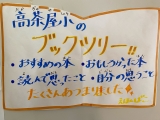 高茶屋小の
ブックツリー!!
・おすすめの本 ・おもしろかった本
・読んで思ったこと ・自分の思うこと
たくさんあつまりました